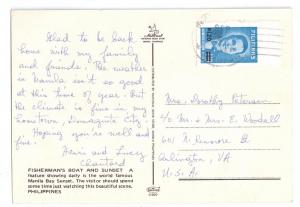 Glad to be back
home with my family
and friends. The weather
in Manila isn't so good
at this time of year. But
the climate is fine in my
hometown, Dumaguete City.
Hoping you're well and
fine.
FISHERMAN'S BOAT AND SUNSET A
feature showing daily is the world famous
Manila Bay Sunset. The visitor should spend
some time just watching this beautiful scene.
PHILIPPINES
PILIPINAS
Mrs. Dorothy Peterson
c/o Mr. & Mrs. E. Woodall
601 N. Kenmore St.
Arlington, VA
U.S.A.